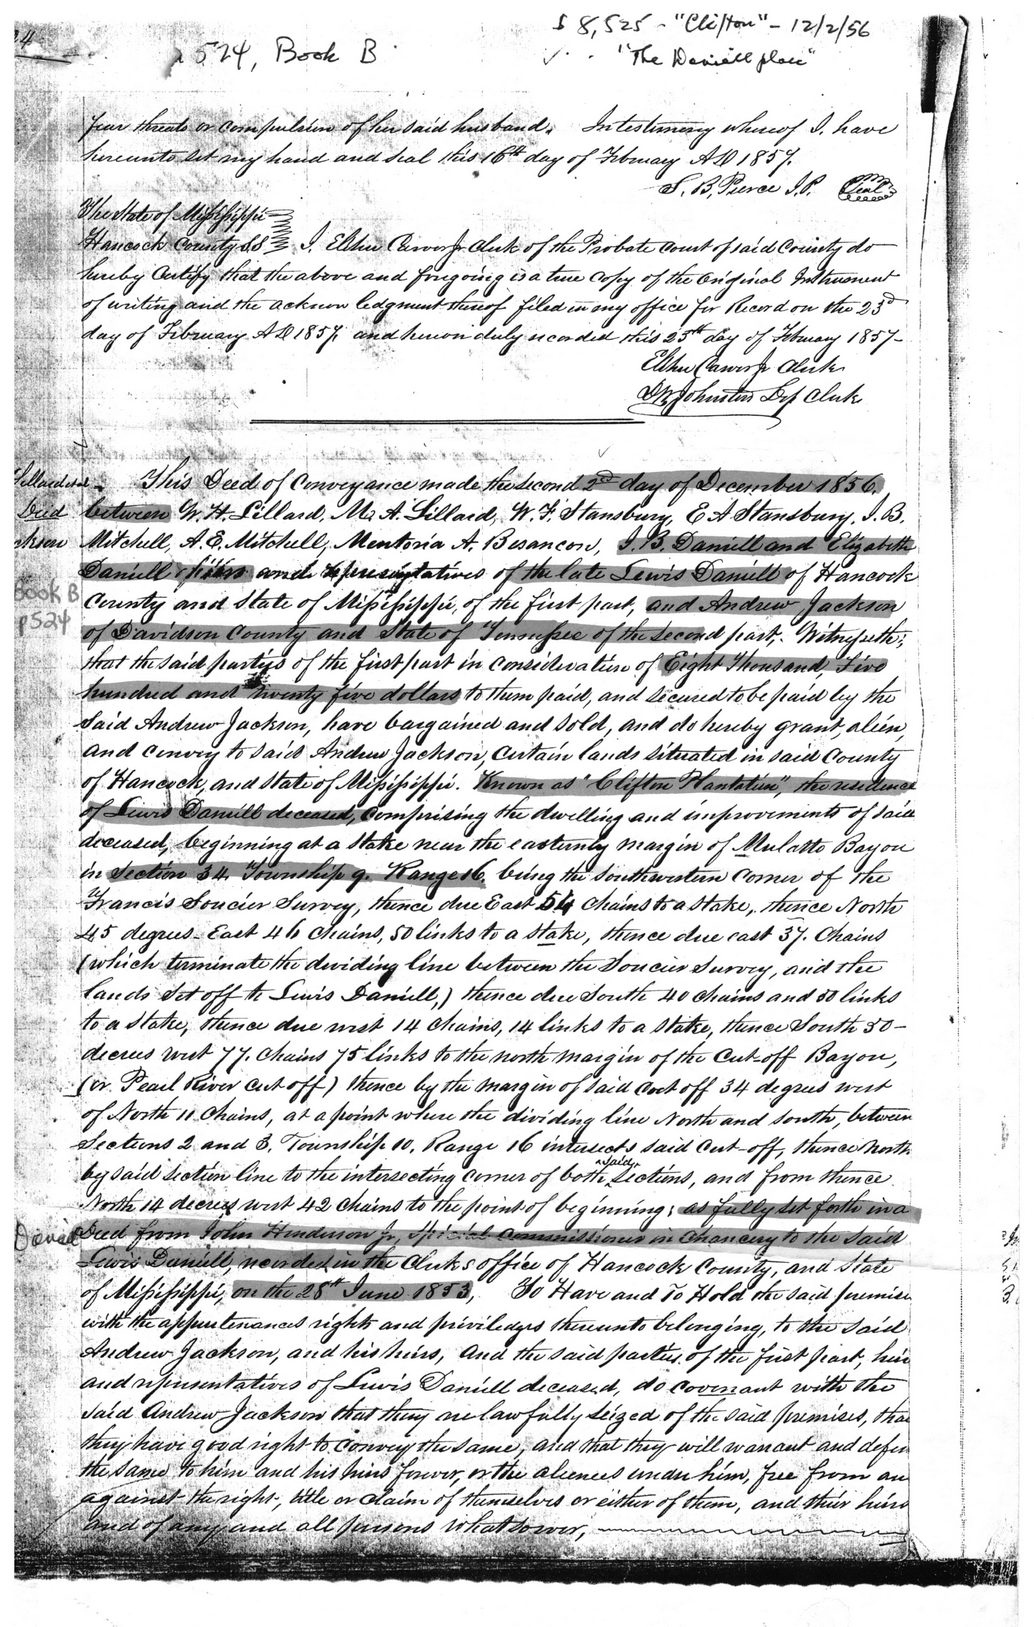 24
p 524, Book B
$ 8,525 - "Clifton" - 12/2/56
"The Daniell place"
fear threats or compulsion of her said husband. In testimony whereof I have
hereunto set my hand and seal this 16th day of February AD 1857.
S. B. Pierce J.P. Seal
The State of Mississippi
Hancock County SS I. Elihu Carver Jr Clerk of the Probate Court of said County do
hereby Certify that the above and foregoing is a true copy of the Original Instrument
of writing and the acknowledgment thereof filed in my office for Record on the 23d
day of February AD 1857, and hereon duly recorded this 25th day of February 1857-
Elihu Carver Jr Clerk
Johnston Dep Clerk
Lillard et al
Deed
Jackson
Book B
p524
This Deed of Conveyance made the second 2nd day of December 1856.
between W. H. Lillard, M. A. Lillard, W. F. Stansbury, E A Stansbury, J. B.
Mitchell, A. E. Mitchell, Mentoria A. Besancon, J. B. Daniell and Elizabeth
Daniell heirs and representatives of the late Lewis Daniell of Hancock
County and State of Mississippi, of the first part, and Andrew Jackson
of Davidson County and State of Tennessee of the second part, Witnesseth;
that the said parties of the first part in consideration of Eight Thousand, Five
hundred and twenty five dollars to them paid, and secured to be paid by the
said Andrew Jackson, have bargained and sold, and do hereby grant, alien,
and convey to said Andrew Jackson, certain lands situated in said County
of Hancock, and State of Mississippi. Known as "Clifton Plantation", the residence
of Lewis Daniell deceased, comprising the dwelling and improvements of said
deceased, beginning at a stake near the easternly margin of Mulatto Bayou
in Section 34. Township 9. Range 16. being the Southwestern corner of the
Francis Soucier Survey, thence due East 54 chains to a stake, thence North
45 degrees East 46 chains, 50 links to a stake, thence due east 37. Chains
(which terminate the dividing line between the Soucier Survey, and the
lands set off to Lewis Daniell,) thence due South 40 chains and 50 links
to a stake, thence due west 14 chains, 14 links to a stake, thence South 50-
decrees west 77. Chains 75 links to the north margin of the Cut-off Bayou,
(or Pearl River cut off) thence by the margin of said cut off 34 degrees west
of North 11 chains, at a point where the dividing line North and South, between
Sections 2 and 3. Township 10. Range 16 intersects said Cut-off, thence North
by said section line to the intersecting corner of both said Sections, and from thence
North 14 decrees west 42 chains to the point of beginning; as fully set forth in a
Deed from John Henderson Jr, Special Commissioner in Chancery to the said
Lewis Daniell, recorded in the Clerks office of Hancock County, and State
of Mississippi, on the 28th June 1853, To Have and To Hold the said premise
with the appurtenances rights and priviledges thereunto belonging, to the said
Andrew Jackson, and his heirs, and the said parties of the first part, heirs
and representatives of Lewis Daniell deceased, do covenant with the
said Andrew Jackson that they are lawfully seized of the said premises, that
they have good right to convey the same, and that they will warrant and defen
the same to him and his heirs forever, or the aliences under him, free from an
against the right, title or claim of themselves or either of them, and their heirs
and of any and all persons whatsoever,